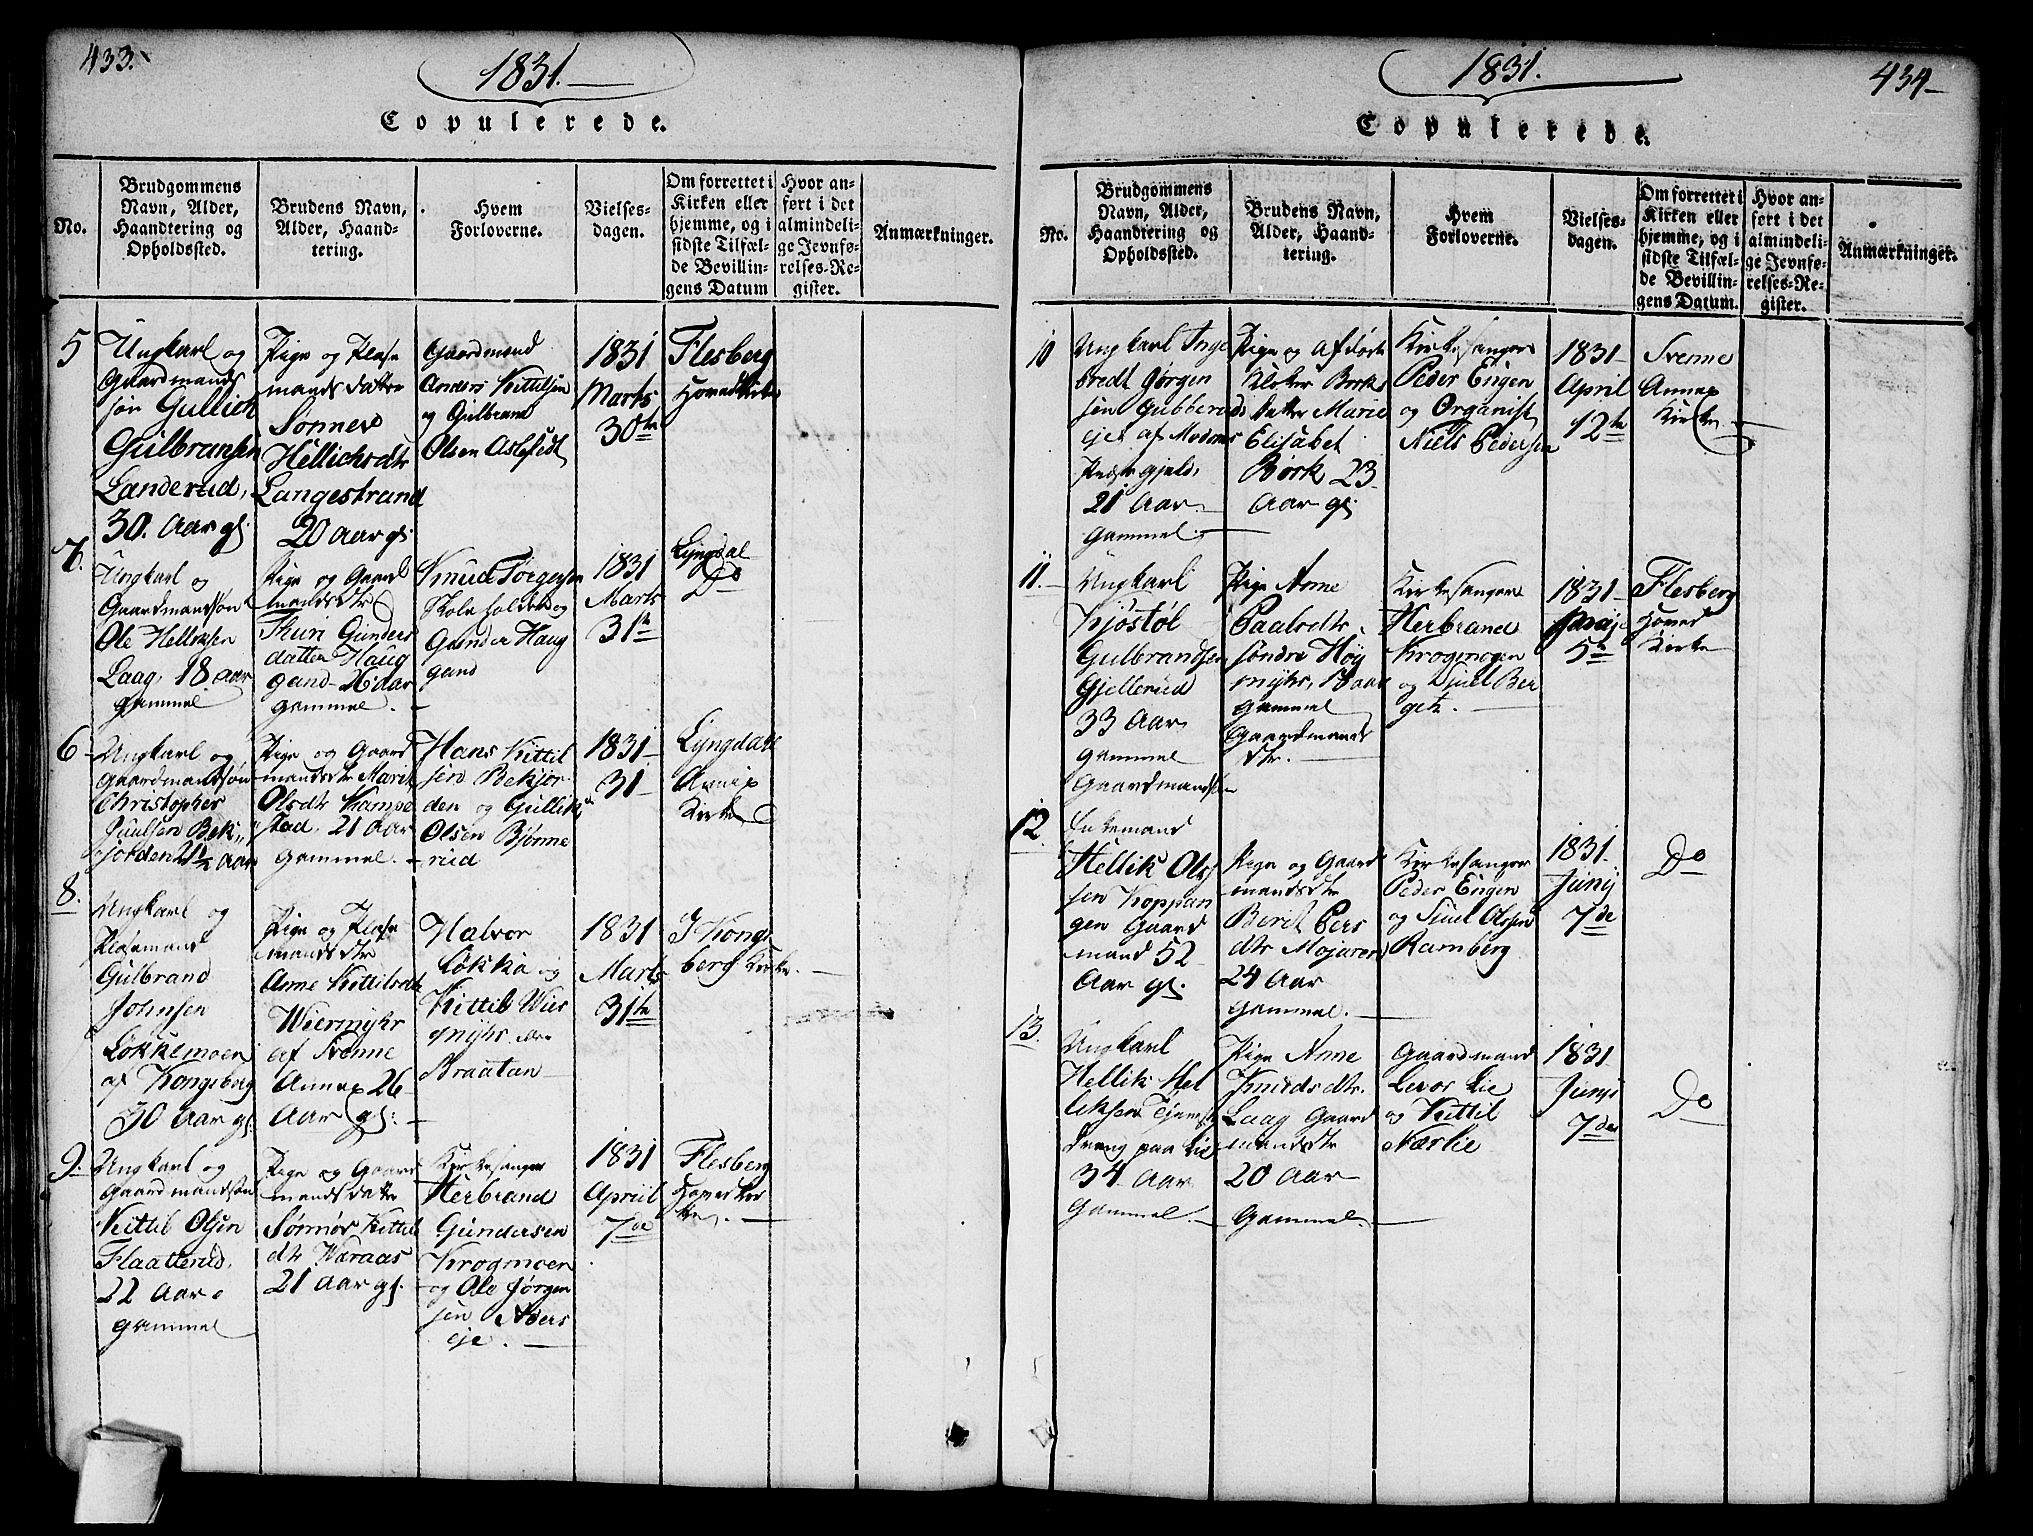 433.
1831.
Copulerede.
No.
Brudgommens
Navn, Alder,
Haandtering og
Opholdssted.
Brudens Navn,
Alder, Haand-
tering.
Hvem
Forloverne.
Vielses-
dagen.
Om forrettet i
Kirken eller
hjemme, og i
sidste Tilfæl-
de Bevillin-
gens Datum
Hvor an-
ført i det
almindeli-
ge Jevnfø-
relses-Re-
gister.
Anmærkninger.
5
Ungkarl og
Gaardmands
søn Gullich
Gulbransen
Landerud,
30. Aar gl.
Pige og Plads
mands datter
Sønnev
Hellichsdtr
Langestrand
20 Aar gl.
Gaardmand
Anders Kittilsen
og Gulbrand
Olsen Aslefedt
1831
Marts
30te
Flesberg
Hovedkirke
7.
Ungkarl og
Gaardmandssøn
Ole Helliksen
Laag, 18 Aar
gammel
Pige og Gaard
mandsdtr
Thuri Gunders
datter Haug
gand Aar
gammel.
Knud Torgersen
Skoleholder og
Gunder Haug
gand
1831
Marts
31te
Lyngdal
Do
6
Ungkarl og
Gaardmandssøn
Christopher
Juulsen Bek
jorden 21½ Aar
Pige og Gaard
mandsdtr Marit
Olsdtr Kampe
stad, 21 Aar
gammel.
Hans Kittil
sen Bekjor
den og Gullik
Olsen Bjønne
rud
1831
31
Lyngdals
Annex
Kirke
8.
Ungkarl og
Pladsmand
Gulbrand
Johnsen
Løkkemoen
af Kongsberg
30 Aar gl.
Pige og Plads
mandsdtr
Anne Kittilsdtr
Wiermyhr
af Svenne
Annex 26
Aar gl:
Halvor
Løkka og
Kittil Wier
myhr eller
Braatan
1831
Marts
31te
I Kongs
berg Kirke.
9.
Ungkarl og
Gaardmandssøn
Kittil Olsen
Flaatterud,
22 Aar
gammel
Pige og Gaard
mandsdatter
Sønnøv Kittils
dtr Waraas
21 Aar gl.
Kirkesanger
Herbrand
Gundersen
Krogmoen
og Ole Jørgen
sen Aaers
eje.
1831
Apriil
7de
Flesberg
Hoved Kir
ke.
1831.
434
Copulerede.
No.
Brudgommens
Navn, Alder,
Haandtering og
Opholdssted.
Brudens Navn,
Alder, Haand-
tering.
Hvem
Forloverne.
Vielses-
dagen.
Om forrettet i
Kirken eller
hjemme, og i
sidste Tilfæl-
de Bevillin-
gens Datum.
Hvor an-
ført i det
almindeli-
ge Jevnfø-
relses-Re-
gister.
Anmærkninger.
10
Ungkarl Inge
bredt Jørgen
sen Gubberud
ejet af Modums
Præstegjeld,
21 Aar
gammel.
Pige og Afdøde
Klokker Børks
datter Marie
Elisabet
Børk 23
Aar gl.
Kirkesanger
Peder Engen
og Organist
Niels Pedersen
1831
April
12te
Svenne
Annex
Kirke
11.
Ungkarl
Kjøstøl
Gulbrandsen
Gjellerud
33 Aar
gammel
Gaardmandssøn
Pige Anne
Paalsdtr.
søndre Høy
myhr, 18 Aar
gammel
Gaardmands
dtr.
Kirkesanger
Herbrand
Krogmoen
og Juel Ber
get.
1831
Maij
5te
Flesberg
Hoved
Kirke
12.
Enkemand
Hellik Ols
sen Koppan
gen Gaard
mand 52
Aar gl.
Pige og Gaard
mandsdtr
Beret Pers
dtr Mojaren
24 Aar
gammel.
Kirkesanger
Peder Engen
og Juul Olssen
Ramberg
1831.
Junij
7de
Do
13.
Ungkarl
Hellik Hel
liksen Tjeneste
dreng paa Lie
34 Aar
gammel.
Pige Anne
Knudsdtr.
Laag Gaard
mandsdtr
20 Aar
gammel.
Gaardmand
Levor Lie
og Kittil
Nærlie
1831
Junij
7de
Do